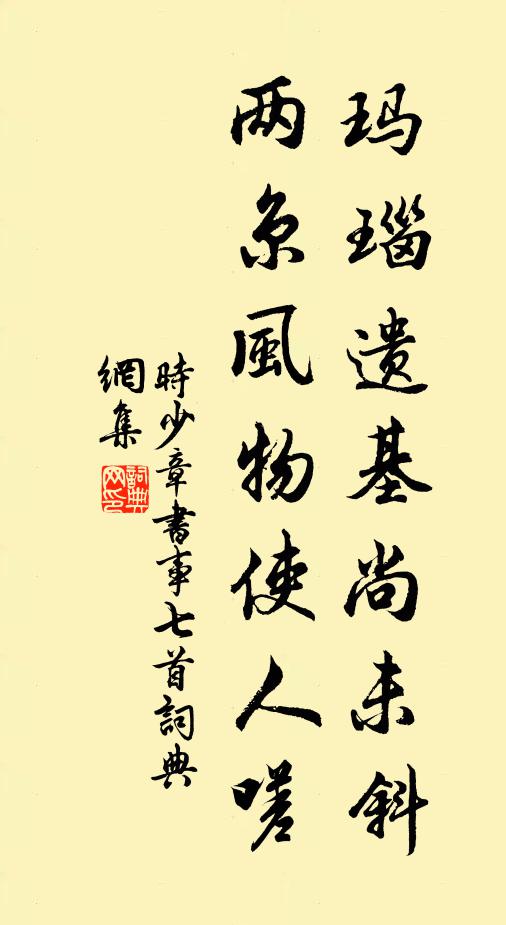 玛瑙遗基尚未斜
两京風物使人嗟
時少章書事七首詞典
網集
詞典
网印